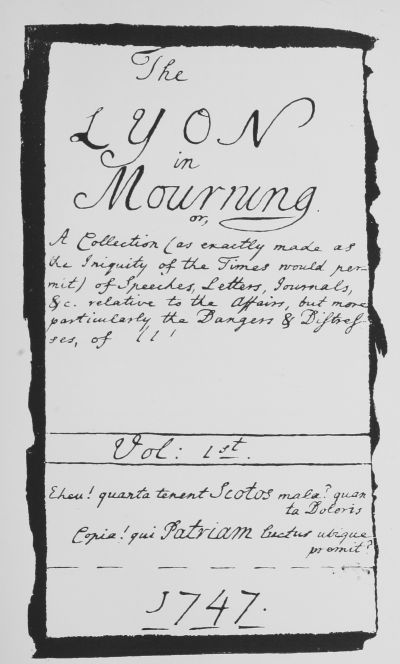 The
LYON
in
Mourning.
or,
A Collection (as exactly made as
the Iniquity of the Times would per-
mit) of Speeches, Letters, Journals,
&c. relative to the Affairs, but more
particularly the Dangers & Distres-
ses, of
Vol: 1st.
Eheu! quanta tenent Scotos mala? quan
ta Doloris
Copia! qui Patriam luctus ubique
premit?
1747.